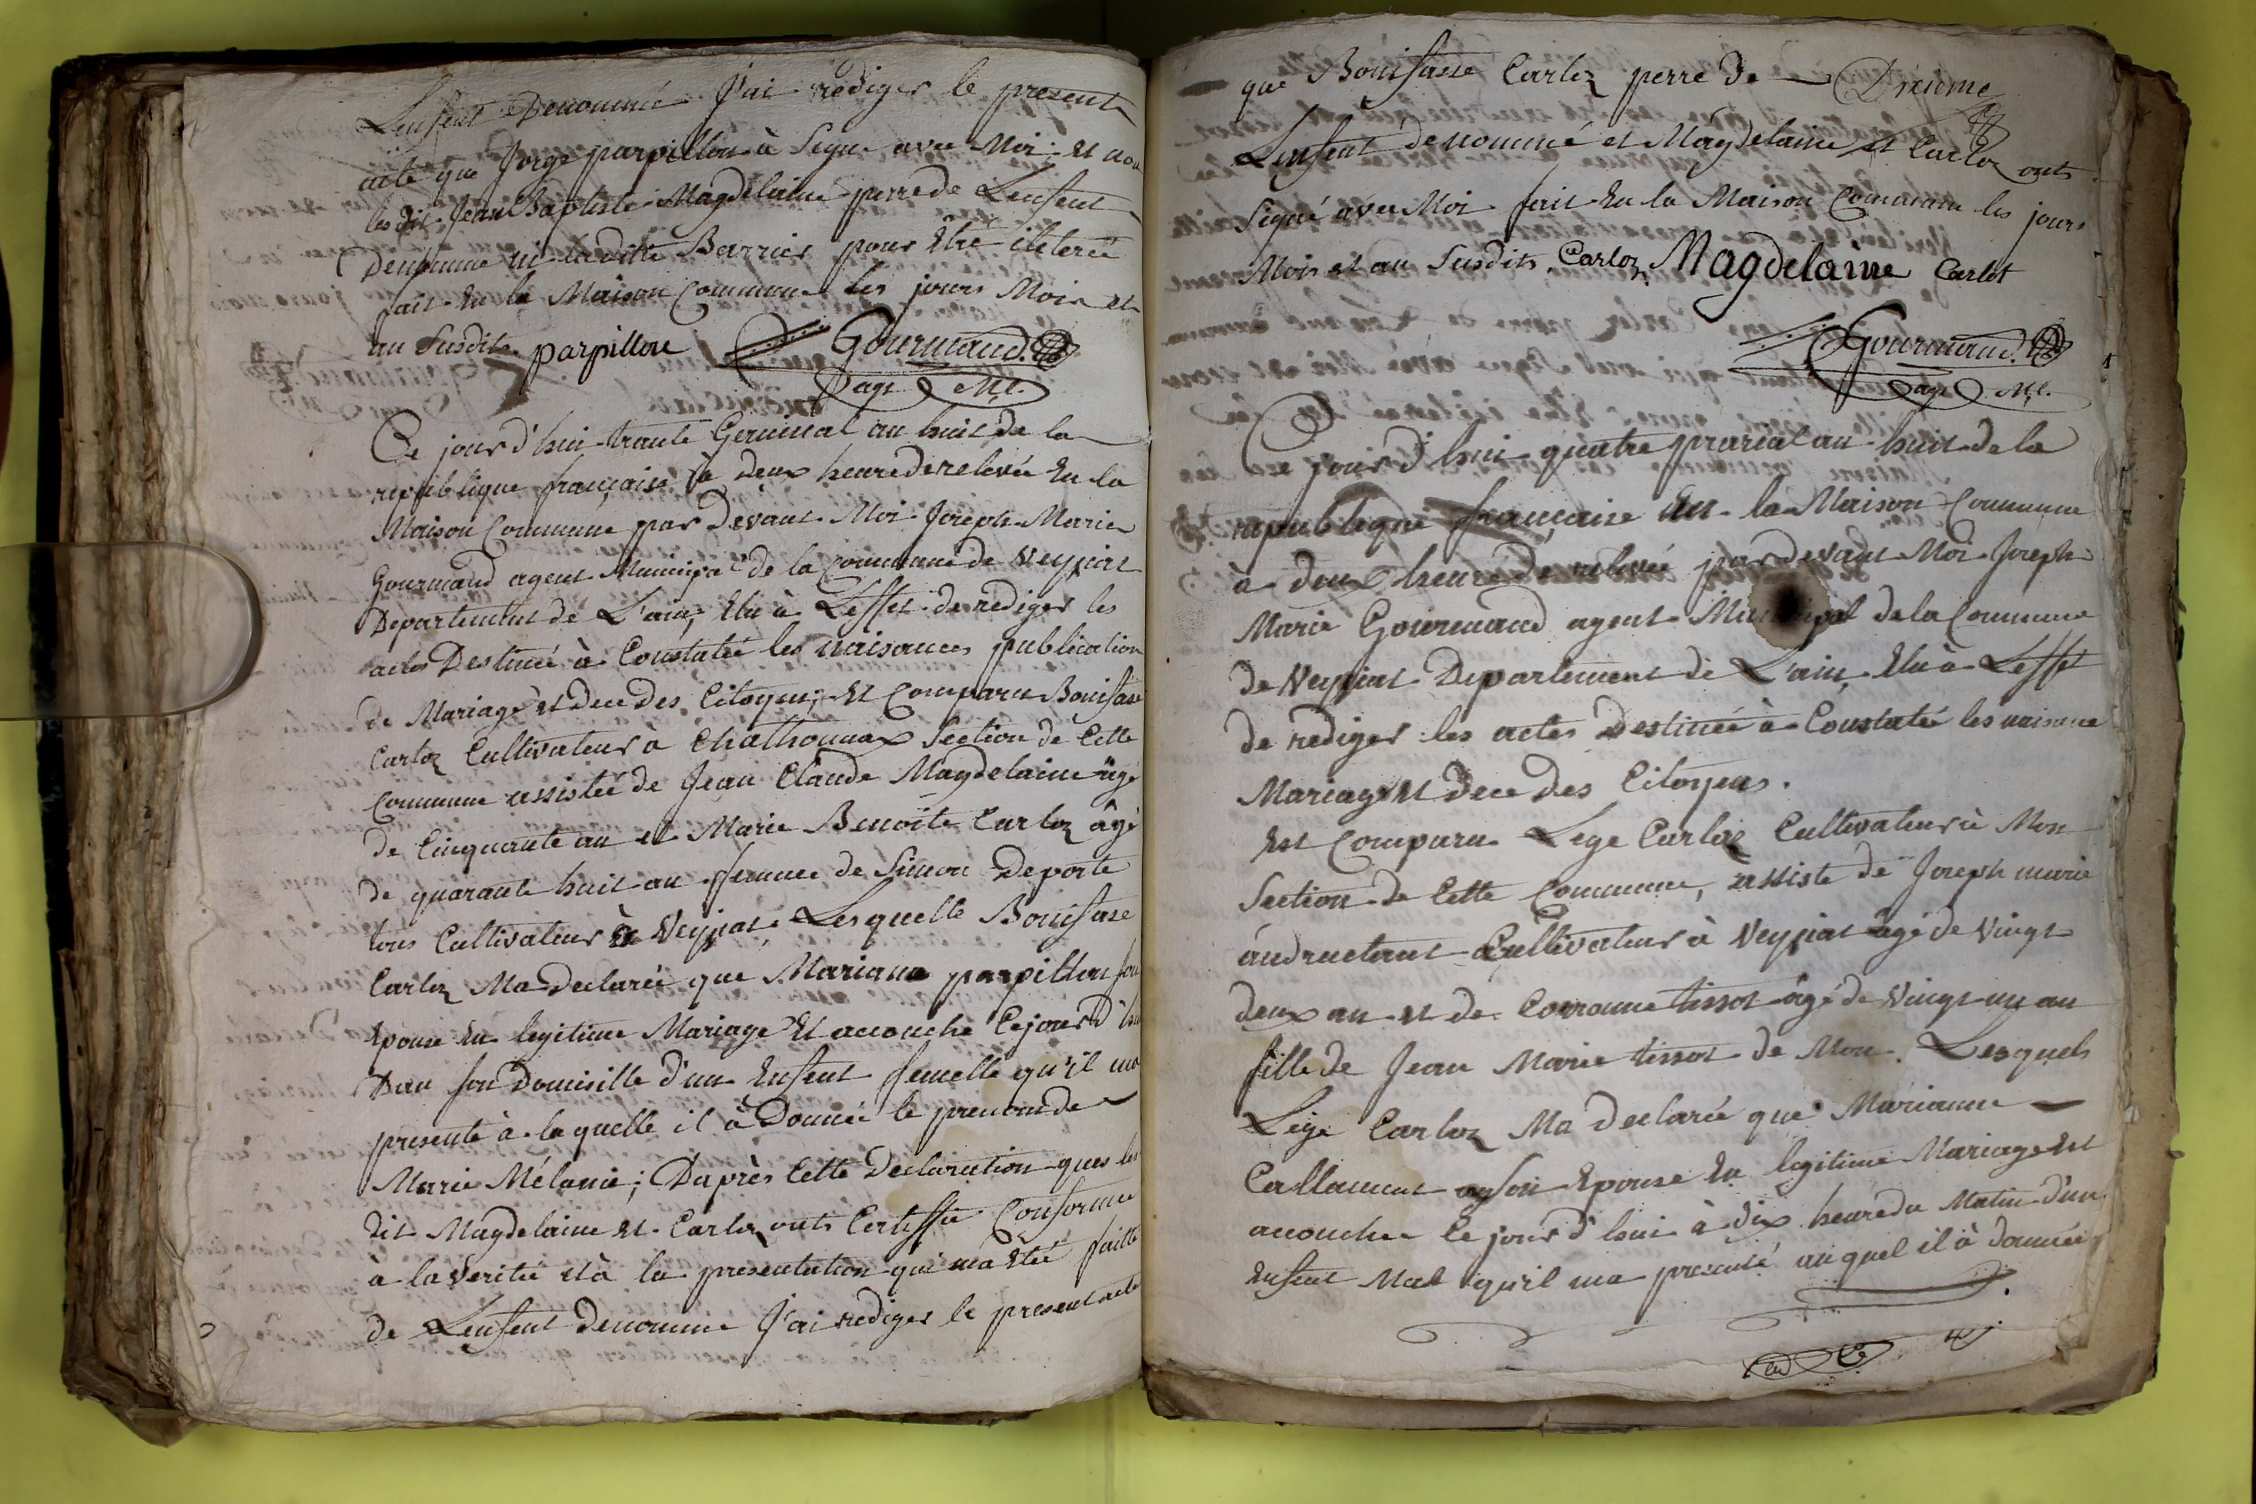 Lenfent Denommé J'ai rediger le present
acte que Jorge parpillon à Signe avec Moi et non
les dit Jean Baptiste Magdelaine perre de Lenfent
Denomme ni ladite Barrier pour Etre iletereé
fait En la Maison Commune les jours Mois et
an Susdits parpillon Gourmand.
agt Ml.
Ce jourd'hui trante Germinal an huit de la
republique française à deux heure de relevée En la
Maison Commune par devant Moi Joseph Marie
Gourmand agent Municipal de la Commune de Veyziat
Departement de L'ain, Elu à L'effet de rediger les
actes Destineé à Constateé les naisances publication
de Mariage et dece des Citoyens; Et Comparu Bonifase
Carloz Cultivateur à Chathonnax Section de Cette
Commune assisteé de Jean Claude Magdelaine âge
de Cinquante an et Marie Benoite Carloz âgé
de quarante huit an femme de Simon Deporte
tous Cultivateur à Veyziat. Lesquelle Bonifase
Carloz Ma declareé que Mariane parpillon son
Epouse En legitime Mariage Et acouche Cejourd'hui
Dan son Domisille d'un Enfent femelle qu'il ma
presente à laquelle il à Donneé le prenom de
Marie Mélanie; D'après Cette declaration ques les
dit Magdelaine et Carloz onts Certiffié Conforme
à la Veritée et à la presentation qui ma Eteé faitte
de Lenfent denomme J'ai rediger le present acte
que Bonifasse Carloz perre de
Lenfent denommé et Magdelaine et Carloz onts
Signé avec Moi fait En la Maison Commune les jours
Mois et an Susdits Carloz Magdelaine Carlot
Gourmand.
agt Ml.
Ce jourd'hui quatre prarial an huit de la
republique française En la Maison Commune
à deux heure de relevée par devant Moi Joseph
Marie Gourmand agent Municipal de la Commune
de Veyziat Departement de L'ain Elu à L'effet
de rediger les actes Destineé à Constateé les naisance
Mariage Et dece des Citoyens.
Est Comparu Lege Carloz Cultivateur à Mon
Section de Cette Commune, assiste de Joseph marie
Cultivateur à Veyziat âgé de Vingt
deux an et de tissot âgé de Vingt un an
fille de Jean Marie tissot de Mon. Lesquels
Lege Carloz Ma declareé que Marianne
son Epouse En legitime Mariage Est
acouche Ce jourd'hui à dix heure du Matin d'un
Enfent Mal qu'il ma presenté auquel il à donneé